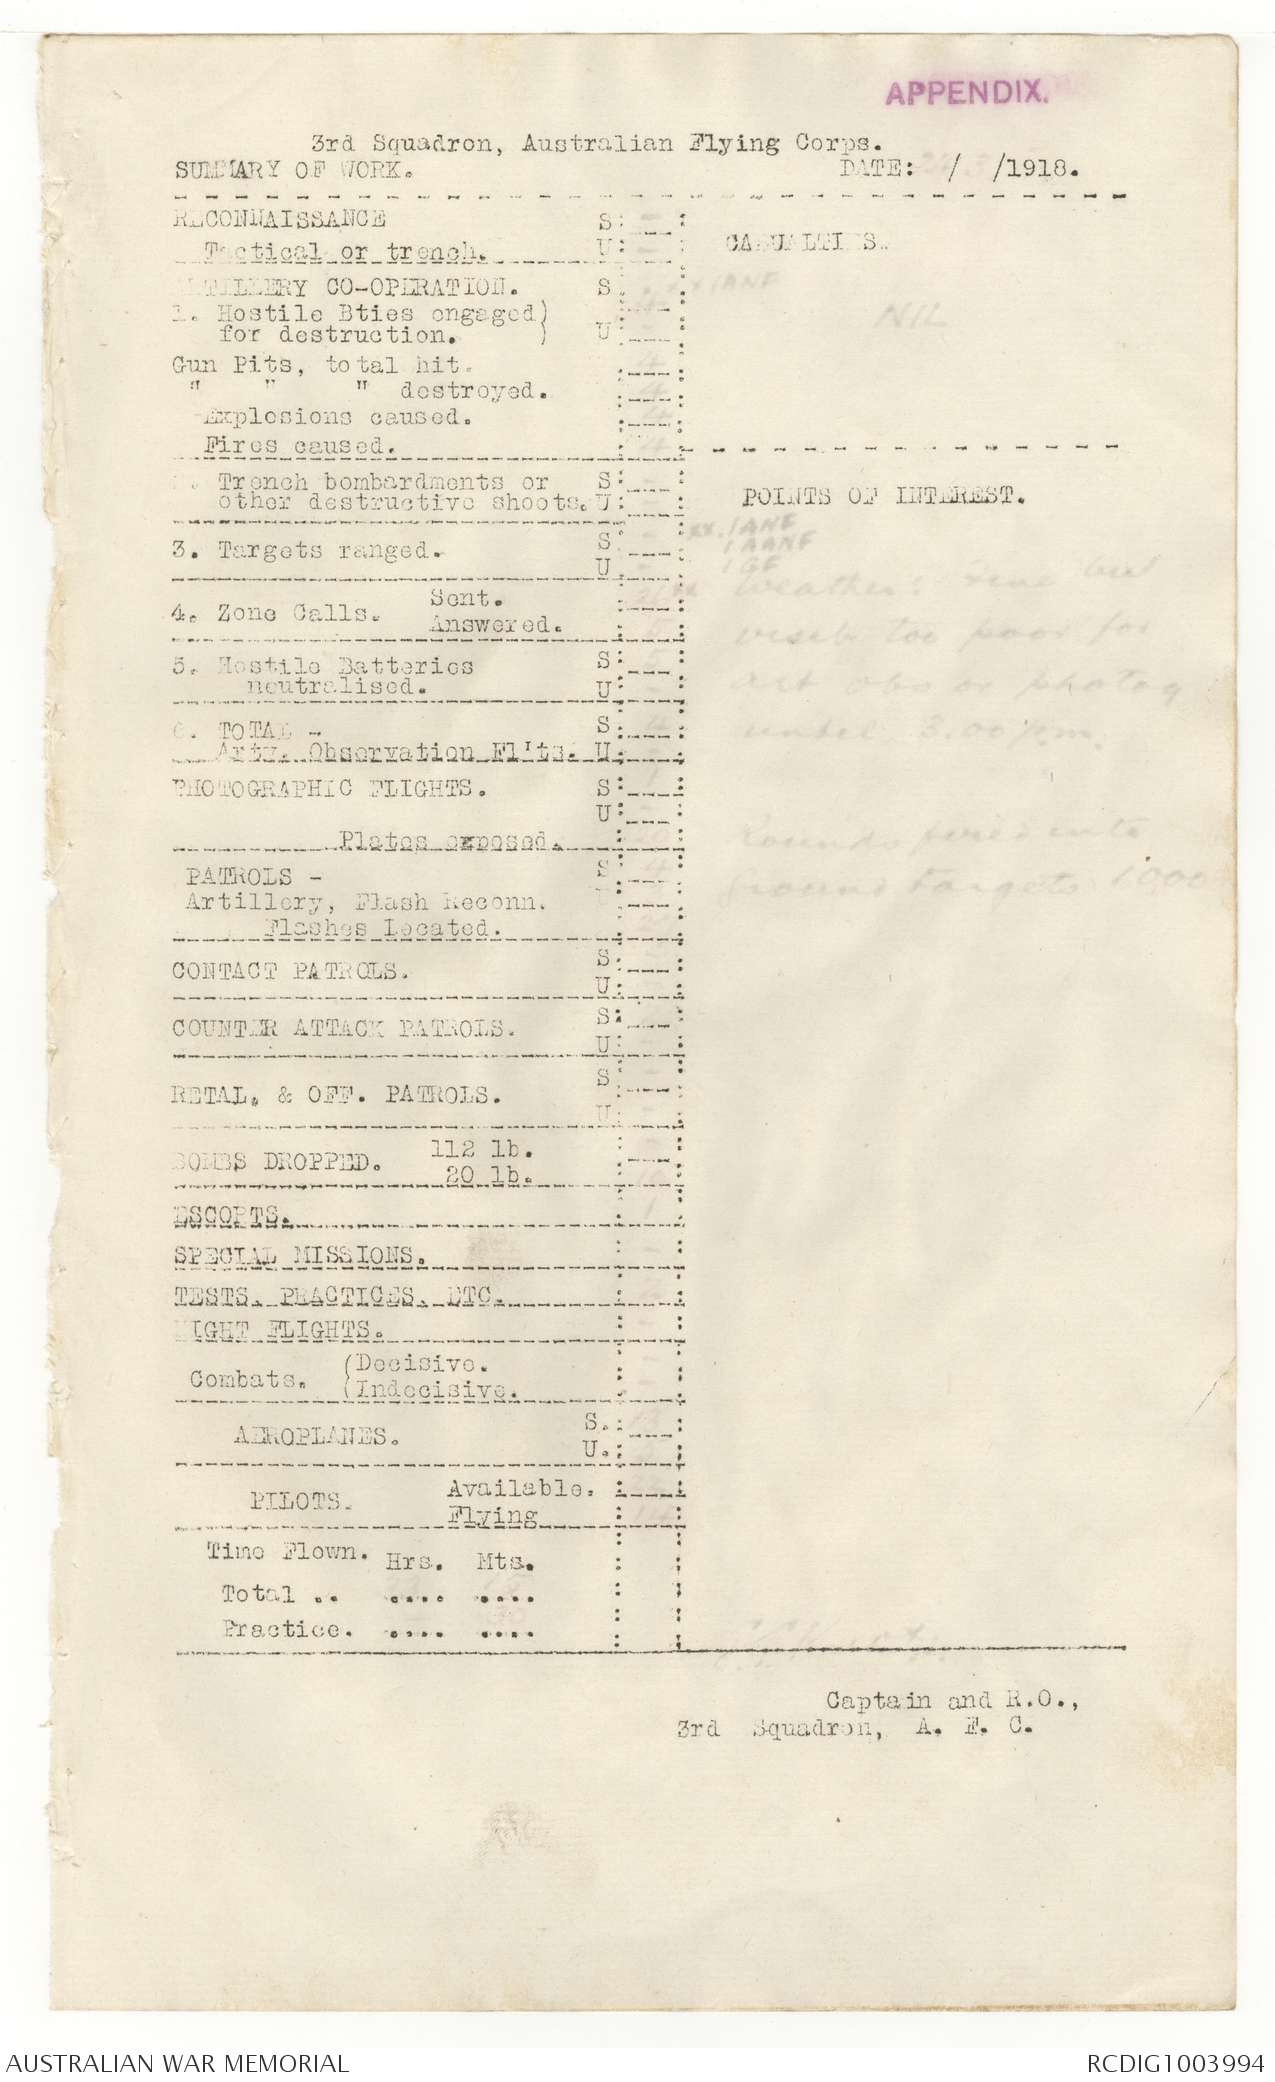 APPENDIX.
3rd Squadron, Australian Flying Corps.
SUMMARY OF WORK.
DATE: / /1918.
RECONNAISSANCE S
Tactical or trench. U
CASUALTIES.
ARTILLERY CO-OPERATION. S
xx 1ANF
1. Hostile Bties engaged)
for destruction. ) U
NIL
Gun Pits, total hit. 4
" " " destroyed. 4
Explosions caused. 4
Fires caused. 4
2. Trench bombardments or S
other destructive shoots. U
POINTS OF INTEREST.
3. Targets ranged. S
U
xx. 1ANF
1 AANF
1 GF
4. Zone Calls. Sent.
Answered.
Weather: Fine but
visib. too poor for
art obs or photog
until 3.00 p.m.
5. Hostile Batteries S
neutralised. U
6. TOTAL - S 4
Arty. Observation Fl'ts. U -
PHOTOGRAPHIC FLIGHTS. S 1
U
Plates exposed.
Rounds fired into
ground targets 1000
PATROLS - S 4
Artillery, Flash Reconn.
Flashes Located.
CONTACT PATROLS. S
U
COUNTER ATTACK PATROLS. S
U
RETAL. & OFF. PATROLS. S
U
BOMBS DROPPED. 112 lb.
20 lb.
ESCORTS. 1
SPECIAL MISSIONS.
TESTS, PRACTICES, ETC.
NIGHT FLIGHTS.
Combats. (Decisive. -
(Indecisive. -
AEROPLANES. S.
U.
PILOTS. Available.
Flying 14
Time Flown. Hrs. Mts.
Total .. .... ....
Practice. .... ....
Captain and R.O.,
3rd Squadron, A. F. C.
AUSTRALIAN WAR MEMORIAL
RCDIG1003994